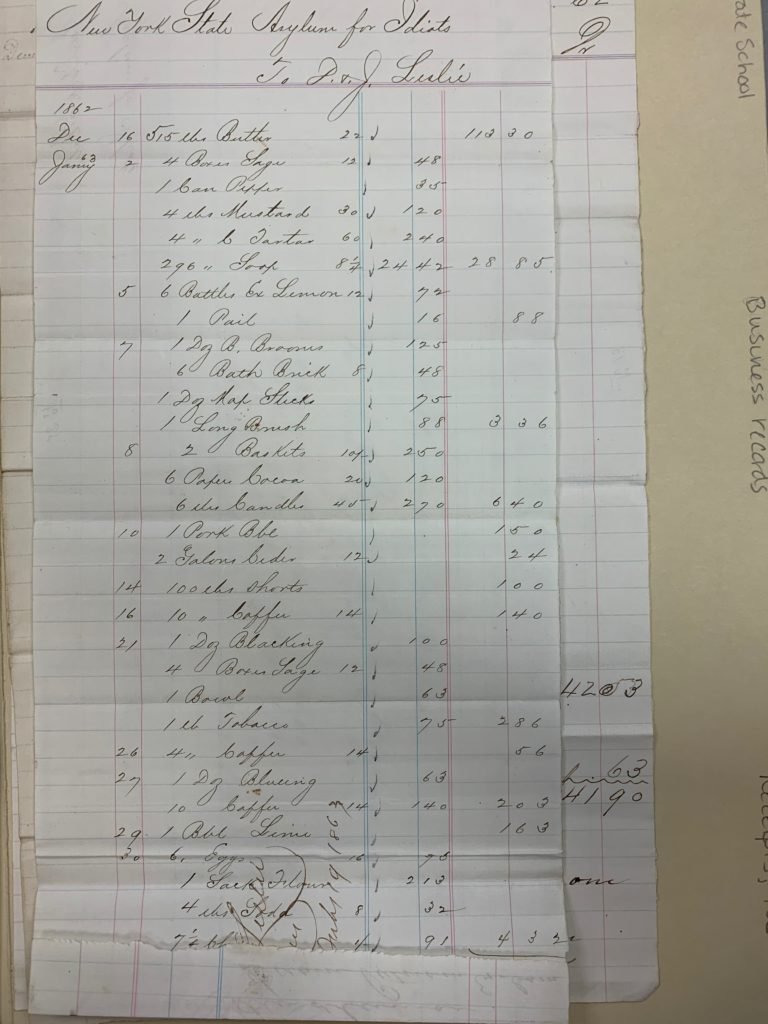 New York State Asylum for Idiots
Dr
To D. & J. Leslie
1862
Dec 16 515 lbs Butter 22 113 30
Jany 63 2 4 Boxes Sage 12 48
1 Can Pepper 35
4 lbs Mustard 30 120
4 " C Tartar 60 240
296 " Soap 8¼ 24 42 28 85
5 6 Bottles Ex Lemon 12 72
1 Pail 16 88
7 1 Doz B. Brooms 125
6 Bath Brick 8 48
1 Doz Mop Sticks 75
1 Long Brush 88 3 36
8 2 Baskets 10/ 250
6 Papers Cocoa 20 120
6 lbs Candles 45 270 640
10 1 Pork Bbl 150
2 Galons Cider 12 24
14 100 lbs Shorts 100
16 10 " Coffee 14 140
21 1 Doz Blacking 100
4 Boxes Sage 12 48
1 Bowl 63
1 lb Tobacco 75 286
26 4 " Coffee 14 56
27 1 Doz Blueing 63
10 Coffee 14 140 203
29 1 Bbl Lime 163
30 6 " Eggs 16 96
1 Sack Flour 213
4 lbs Soda 8 32
91 4 32
1863
4253
63
4190
ate School
Business records
Receipts,